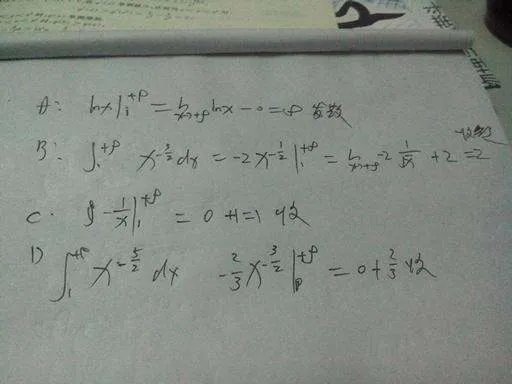 A: lnx|₁^{+∞} = lim_{x→+∞} lnx - 0 = ∞ 发散
B: ∫₁^{+∞} x^{-3/2} dx = -2x^{-1/2}|₁^{+∞} = lim_{x→+∞} -2 1/√x + 2 = 2 收敛
C. -1/x|₁^{+∞} = 0+1=1 收
D ∫₁^{+∞} x^{-5/2} dx -2/3 x^{-3/2}|₁^{+∞} = 0 + 2/3 收